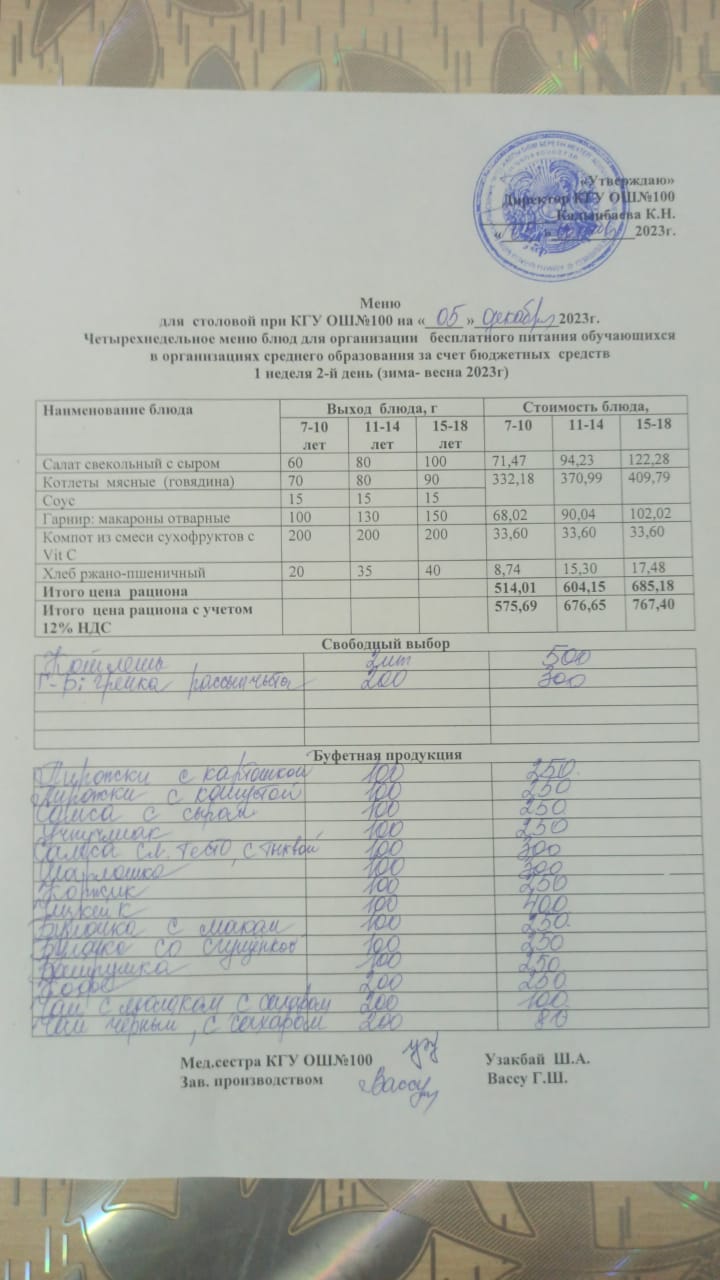 «Утверждаю»
Директор КГУ ОШ№100
Калынбаева К.Н.
« » 2023г.
Меню
для столовой при КГУ ОШ№100 на « 05 » декабря 2023г.
Четырехнедельное меню блюд для организации бесплатного питания обучающихся
в организациях среднего образования за счет бюджетных средств
1 неделя 2-й день (зима- весна 2023г)
Наименование блюда Выход блюда, г Стоимость блюда,
7-10 лет 11-14 лет 15-18 лет 7-10 11-14 15-18
Салат свекольный с сыром 60 80 100 71,47 94,23 122,28
Котлеты мясные (говядина) 70 80 90 332,18 370,99 409,79
Соус 15 15 15
Гарнир: макароны отварные 100 130 150 68,02 90,04 102,02
Компот из смеси сухофруктов с 200 200 200 33,60 33,60 33,60
Vit C
Хлеб ржано-пшеничный 20 35 40 8,74 15,30 17,48
Итого цена рациона 514,01 604,15 685,18
Итого цена рациона с учетом 575,69 676,65 767,40
12% НДС
Свободный выбор
Котлеты 2шт 500
Г-р: гречка рассыпчатая 200 300
Буфетная продукция
Пирожки с картошкой 100 250
Пирожки с капустой 100 250
Самса с сыром 100 250
Учпучмак 100 250
Самса сл. тесто, с тыквой 100 300
Шарлотка 100 300
Коржик 100 250
Чизкейк 100 400
Булочка с маком 100 250
Булочка со сгущенкой 100 250
Ватрушка 100 250
Кофе 200 250
Чай с молоком с сахаром 200 100
Чай черный, с сахаром 200 80
Мед.сестра КГУ ОШ№100 Узакбай Ш.А.
Зав. производством Вассу Вассу Г.Ш.